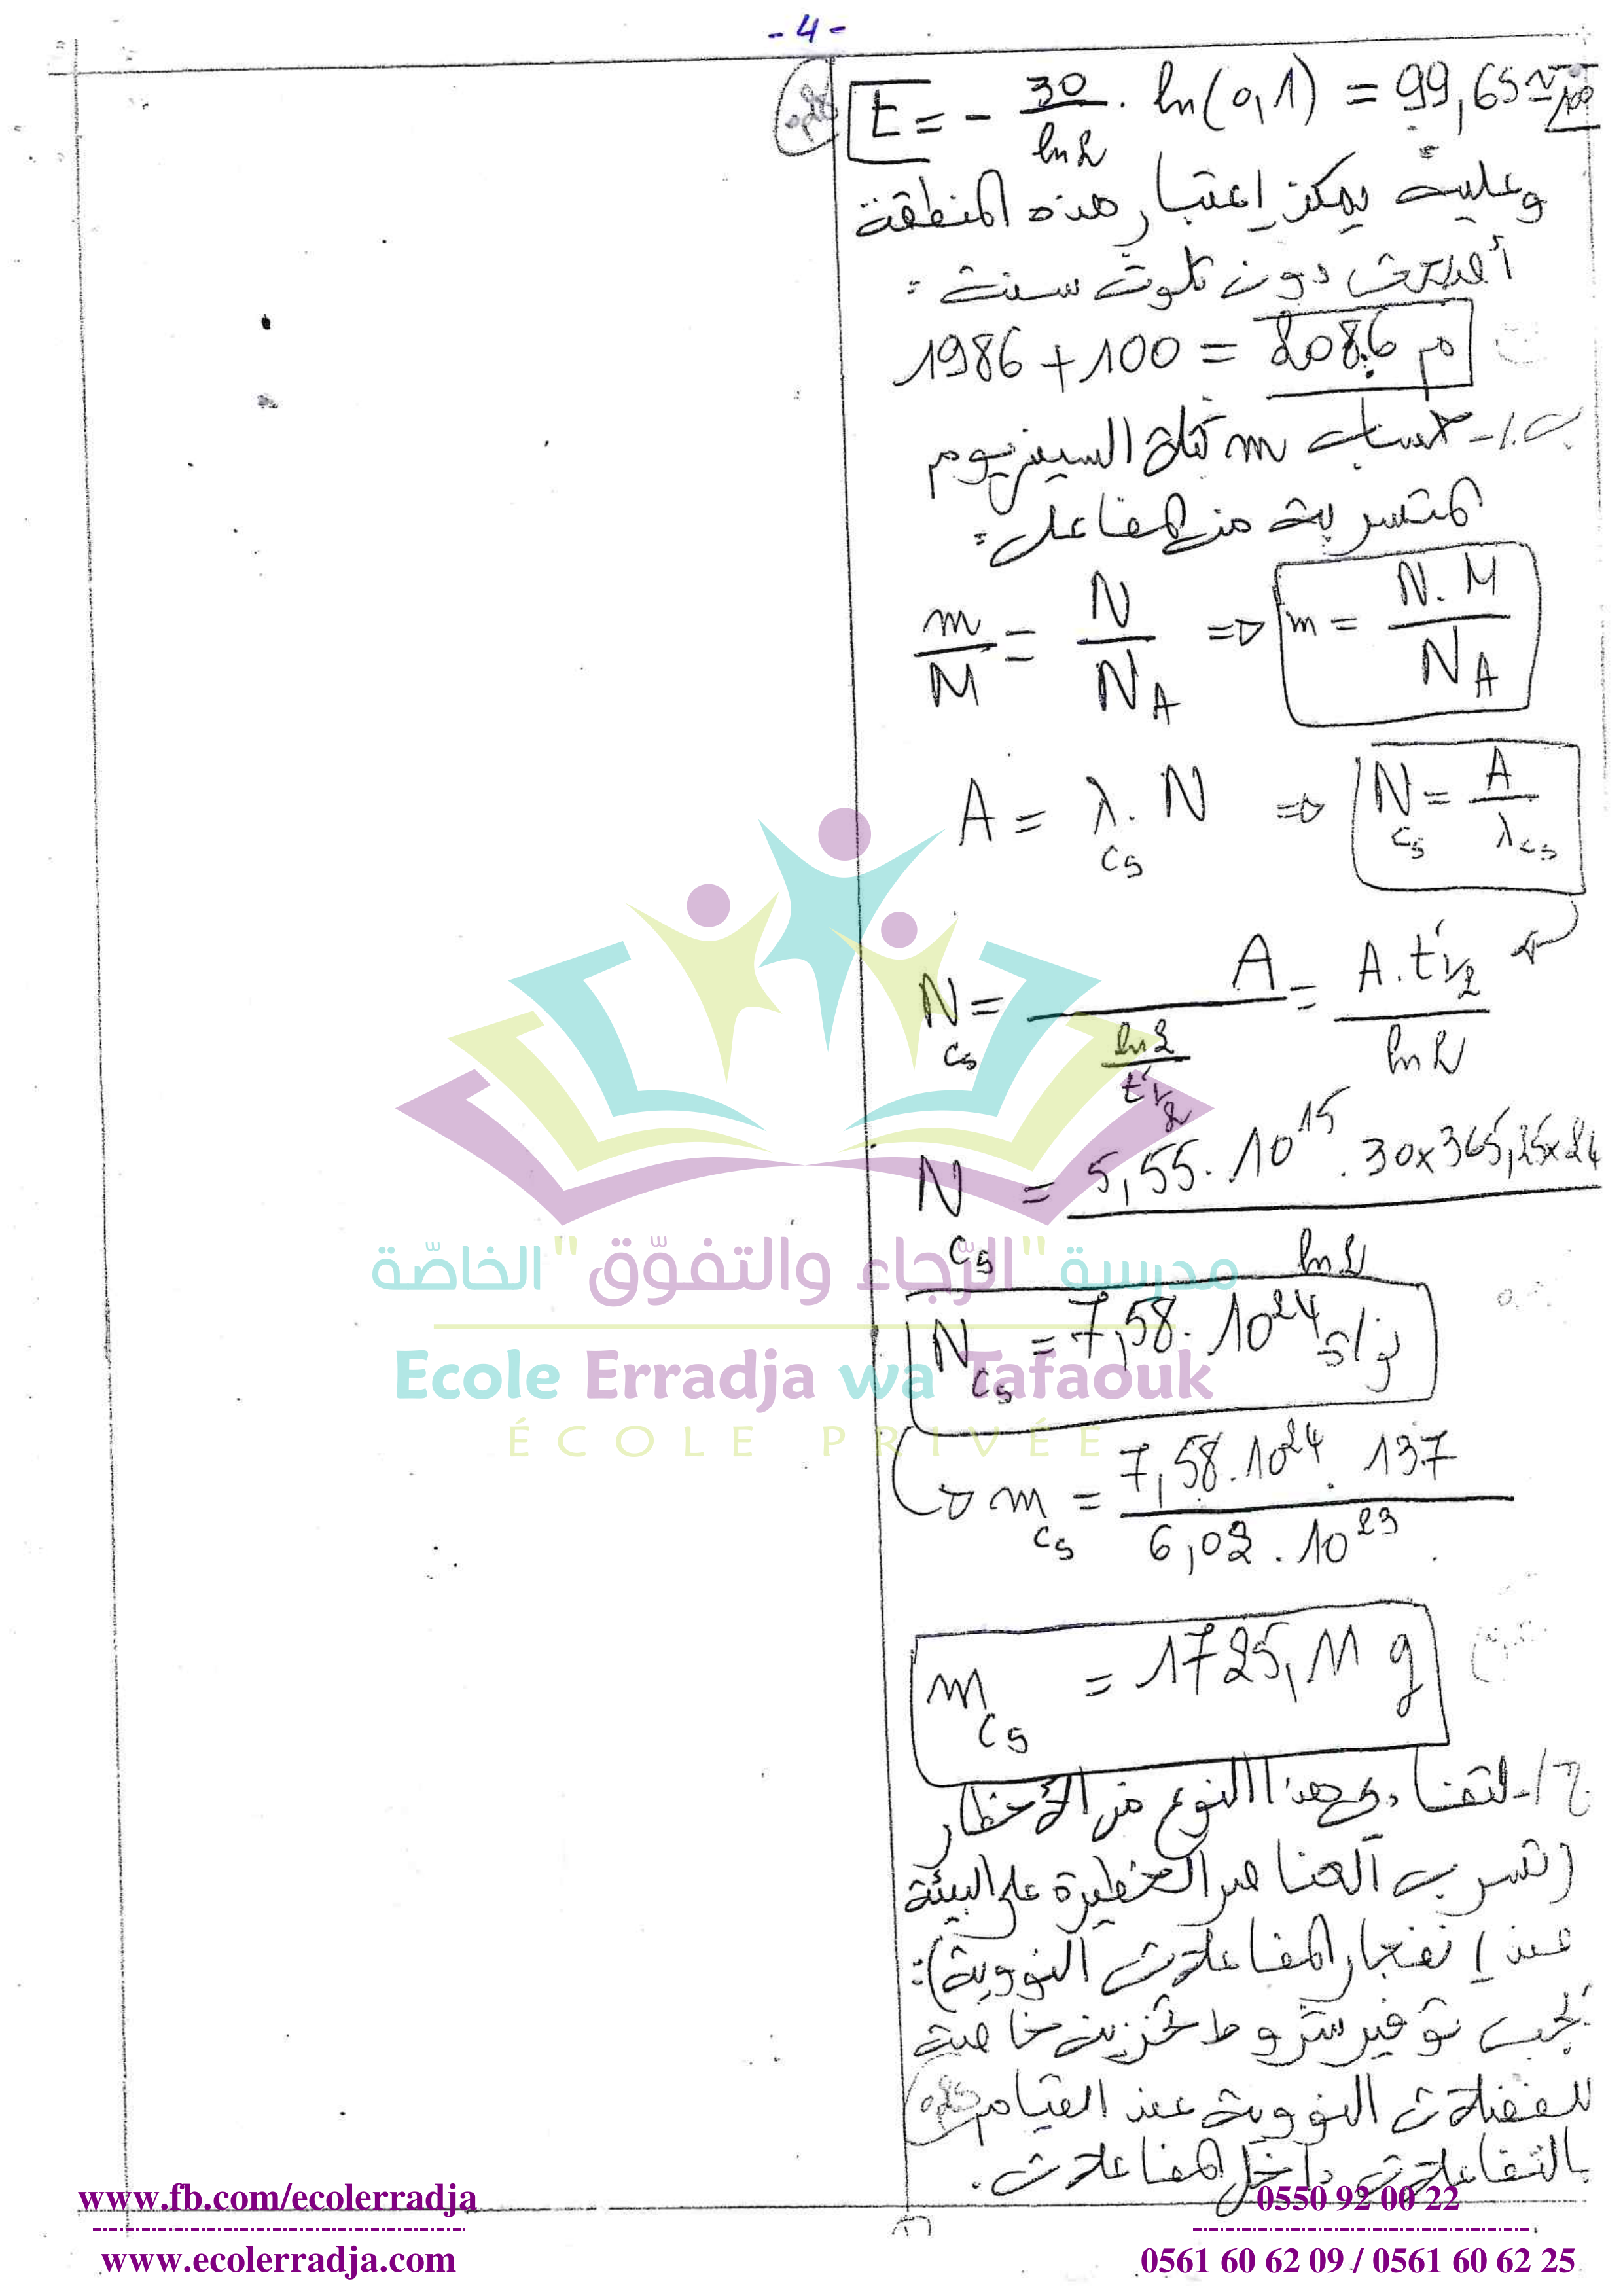 - 4 -
t = - 30/ln2 . ln(0,1) = 99,65 ≈ 100
وعليه يمكن إعتبار هذه المنطقة
أصبحت دون تلوث سنة :
1986 + 100 = 2086 م
ب/- حساب m كتلة السيزيوم
المتسربة من المفاعل :
m/M = N/N_A => m = N.M/N_A
A = λ_Cs . N => N_Cs = A/λ_Cs
N_Cs = A/(ln2/t'1/2) = A.t'1/2/ln2
N_Cs = 5,55.10^15 . 30x365,25x24/ln2
N_Cs = 7,58.10^24
m_Cs = 7,58.10^24 . 137/6,02.10^23
m_Cs = 1725,11 g
ج/- لتفادي هذا النوع من الأخطار
(تسرب العناصر الخطيرة على البيئة
عند إنفجار المفاعلات النووية) :
يجب توفير شروط تخزين خاصة
للفضلات النووية عند القيام
بالتفاعلات داخل المفاعلات .
مدرسة "الرّجاء والتفوّق" الخاصّة
Ecole Erradja wa Tafaouk
ÉCOLE PRIVÉE
www.fb.com/ecolerradja
0550 92 00 22
www.ecolerradja.com
0561 60 62 09 / 0561 60 62 25